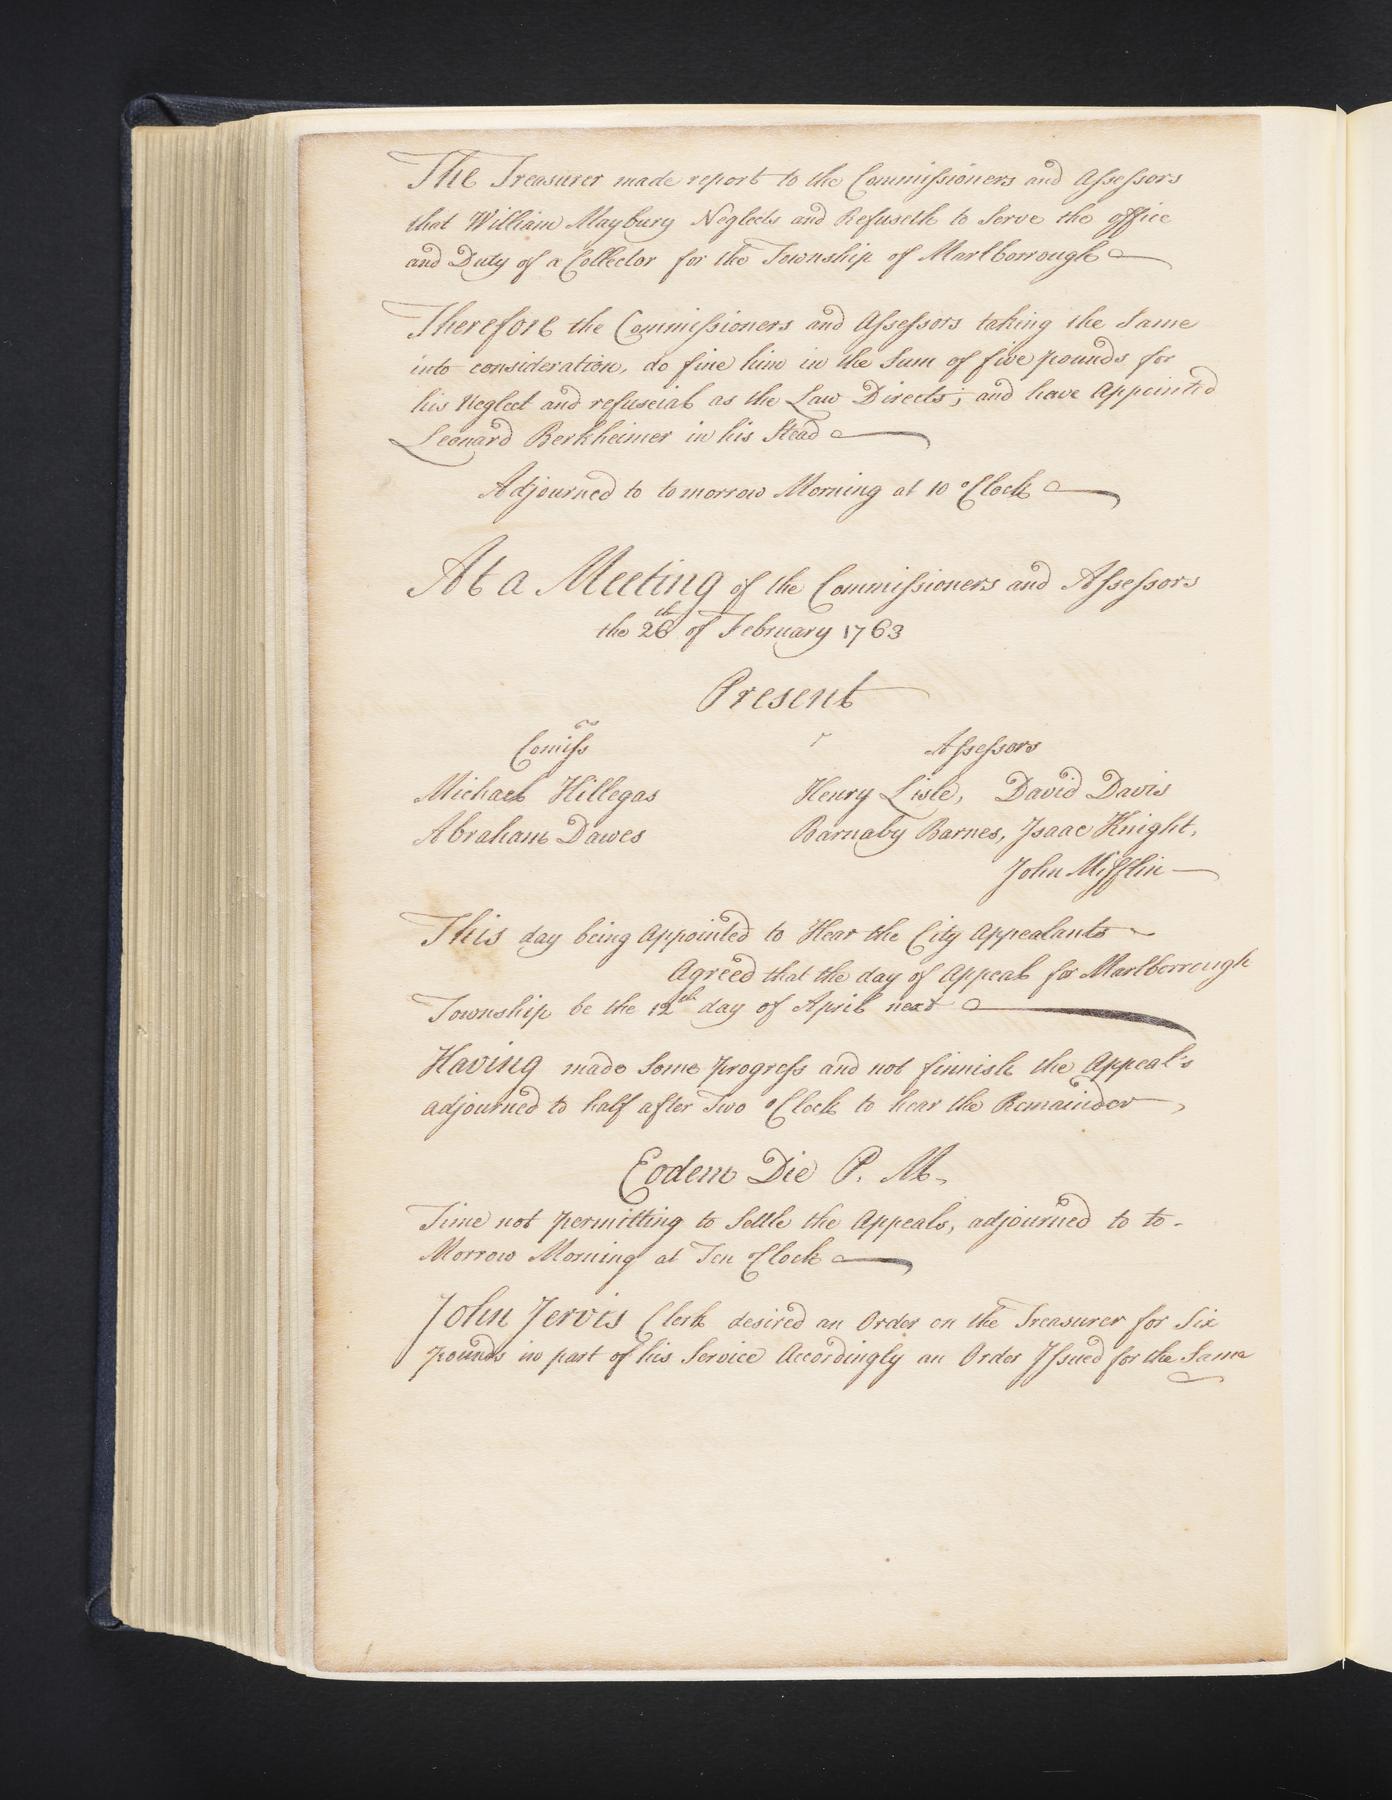 The Treasurer made report to the Commissioners and Assessors
that William Maybury Neglects and Refuseth to Serve the office
and Duty of a Collector for the Township of Marlborrough
Therefore the Commissioners and Assessors taking the Same
into consideration, do fine him in the Sum of five pounds for
his Neglect and refuseial as the Law Directs; and have Appointed
Leonard Berkheimer in his Stead
Adjourned to tomorrow Morning at 10 oClock
At a Meeting of the Commissioners and Assessors
the 26th of February 1763
Present
Comiss Assessors
Michael Hillegas Henry Lisle, David Davis
Abraham Dawes Barnaby Barnes, Isaac Knight,
John Mifflin
This day being Appointed to Hear the City Appealants
Agreed that the day of Appeal for Marlborrough
Township be the 12th day of April next
Having made Some progress and not finnish the Appeal's
adjourned to half after Two oClock to hear the Remainder
Eodem Die P. M.
Time not permitting to Settle the Appeals, adjourned to to-
Morrow Morning at Ten oClock
John Jervis Clerk desired an Order on the Treasurer for Six
pounds in part of his Service Accordingly an Order Issued for the Same